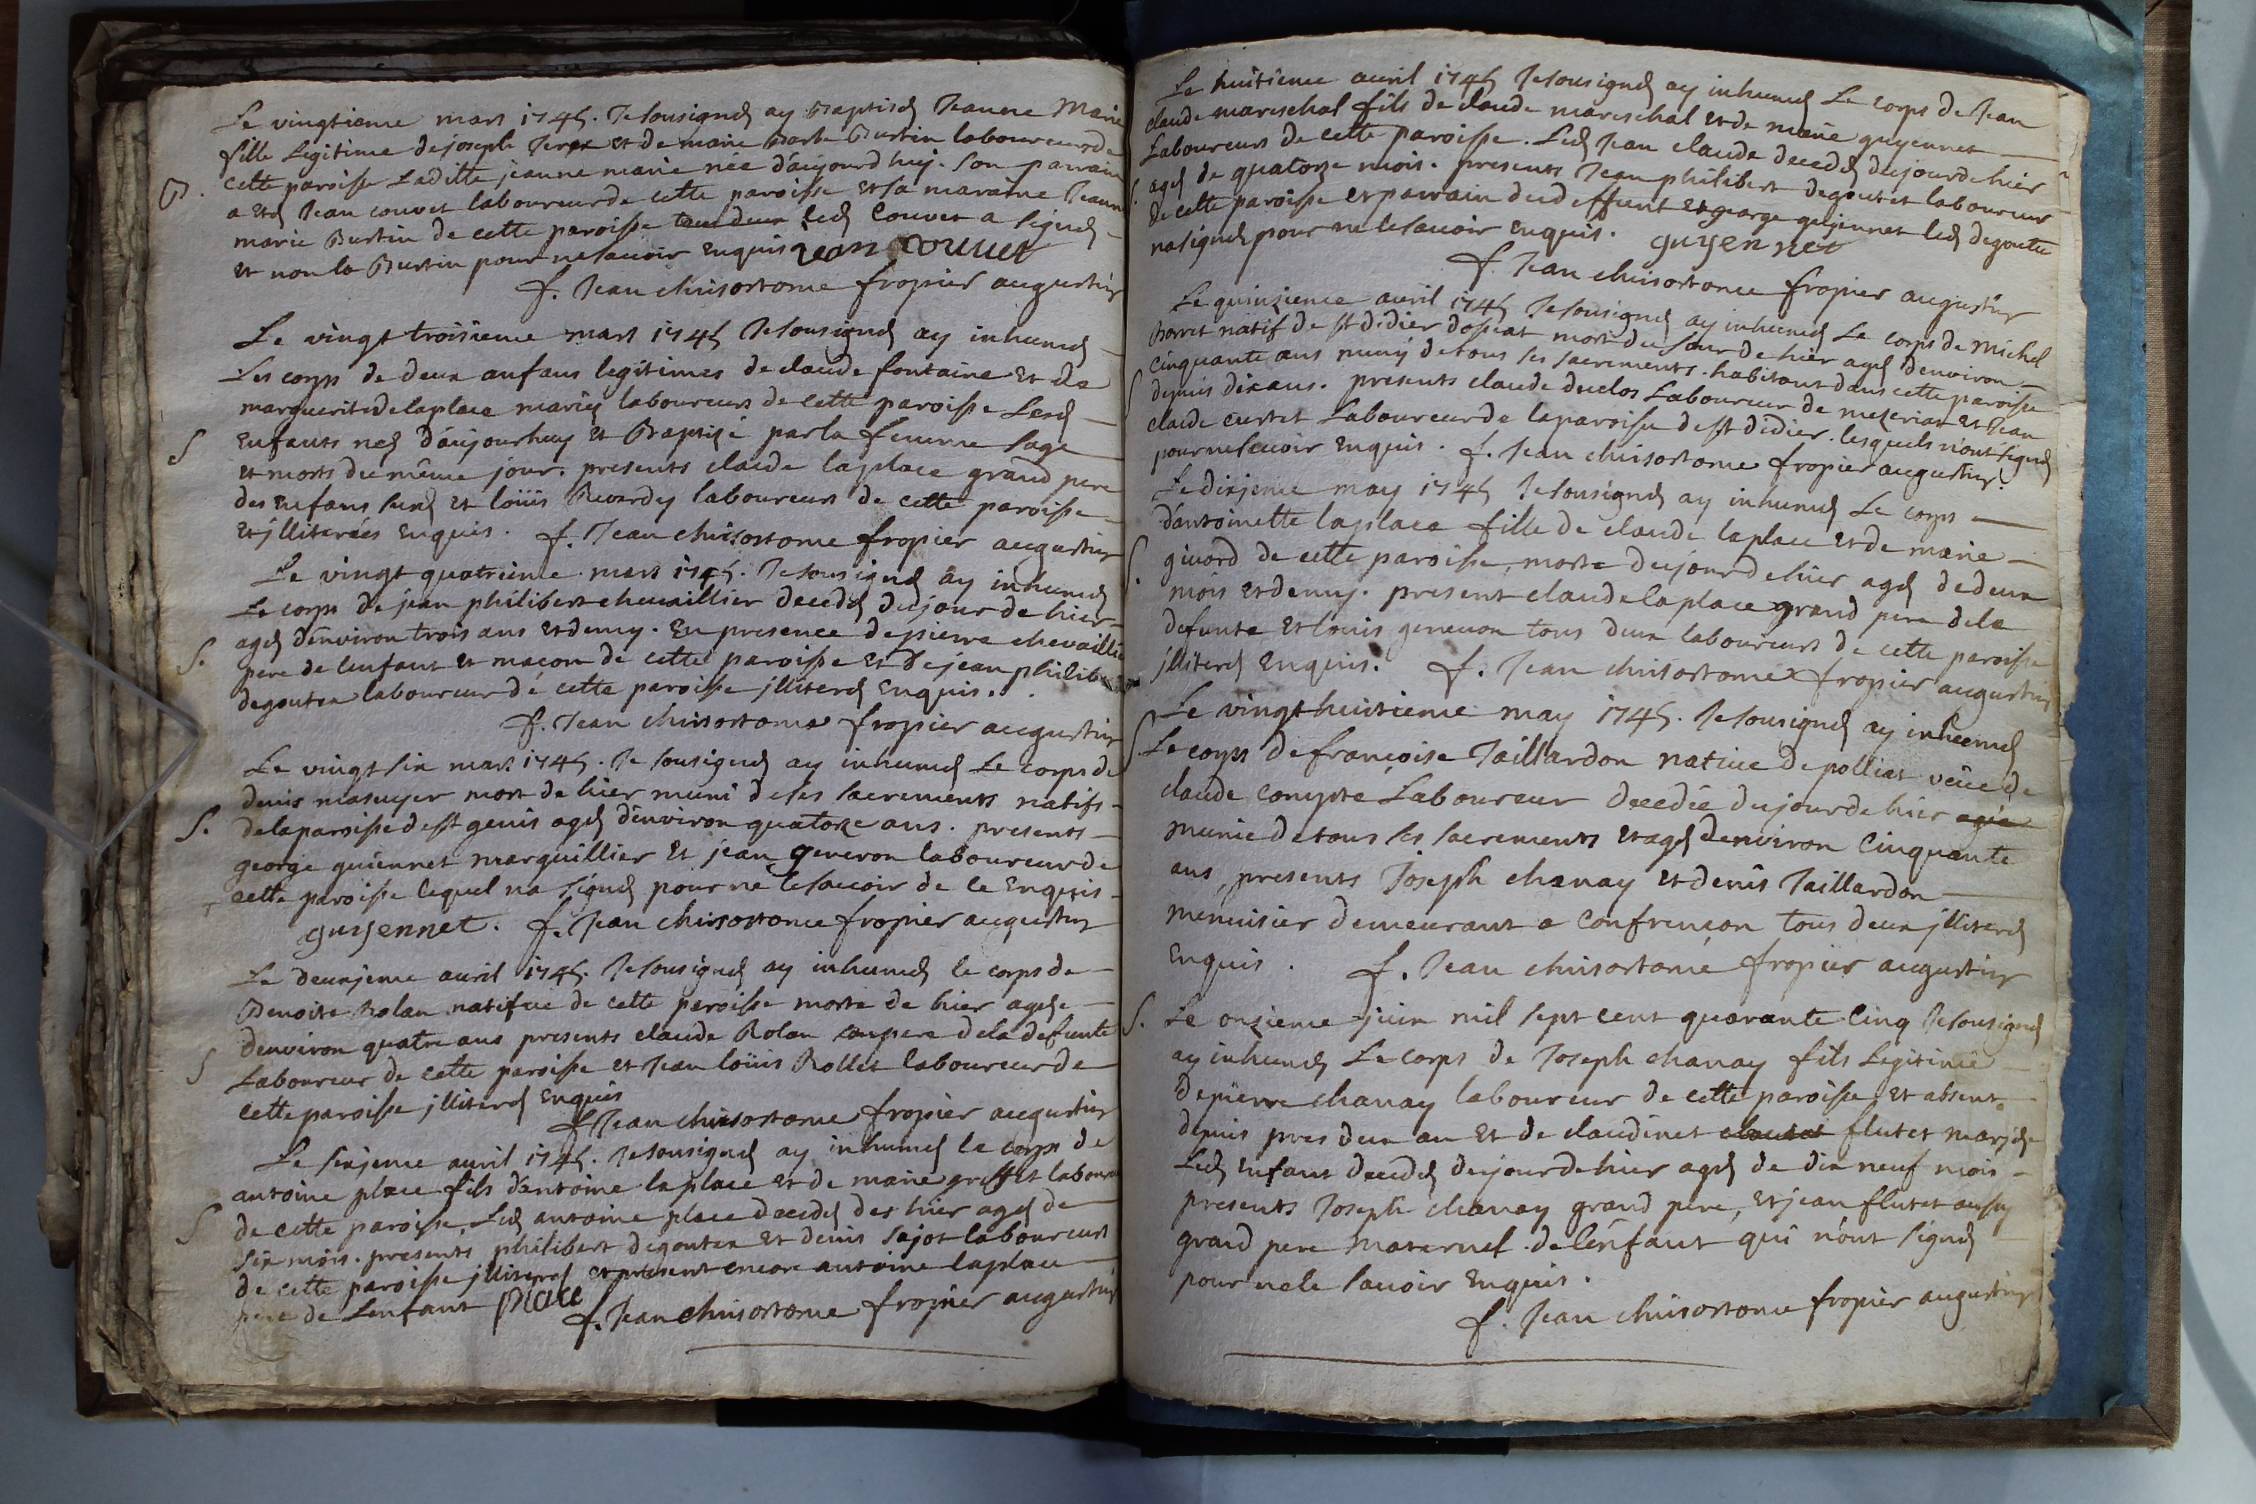 Le vingtieme mars 1745. Je sousigné ay Baptisé Jeanne Marie
fille Legitime de joseph et de marie Burtin laboureurs de
B. cette paroisse Laditte jeanne marie née d'aujourd huy. Son parrain
a eté Jean couvet laboureur de cette paroisse et sa maraine Jeanne
marie Burtin de cette paroisse led Couvet a signé
et non la Burtin pour ne savoir enquis jean couuet
f. Jean chrisostome fropier augustin
Le vingt troisieme mars 1745 Je sousigné ay inhumé
Les corps de deux anfans legitimes de claude fontaine et de
marguerite delaplace mariés laboureurs de cette paroisse Lesd
S enfants nes d'aujourhuy et Baptisé par la femme sage
et morts du même jour. presents claude laplace grand pere
des enfans susd et loüis Revordy laboureurs de cette paroisse
et jlliterées enquis. f. Jean chrisostome fropier augustin
Le vingt quatrieme mars 1745. Je sousigné ay inhumé
Le corps de jean philibert chevaillier decedé du jour de hier
S. agé d'environ trois ans et demy. En presence de pierre chevaillier
pere de lenfant et macon de cette paroisse et de jean philibert
degoutta laboureur de cette paroisse jlliteré enquis.
f. Jean chrisostome fropier augustin
Le vingt six mars 1745. Je sousigné ay inhumé Le corps de
denis masuyer mort de hier muni de ses sacrements natifs
S. de la paroisse de st genis agé d'environ quatorze ans. presents
george guiennet marguillier et jean generon laboureur de
cette paroisse lequel na signé pour ne le savoir de ce enquis
guyennet. f. Jean chrisostome fropier augustin
Le deuxjeme avril 1745. Je sousigné ay inhumé le corps de
Benoite Rolan natifue de cette paroisse morte de hier agée
denviron quatre ans presents claude Rolan son pere dela defunte
S Laboureur de cette paroisse et Jean loüis Rollet laboureur de
cette paroisse jlliteré enquis
f Jean chrisostome fropier augustin
Le sixjeme avril 1745. Je sousigné ay inhumé le corps de
antoine place fils d'antoine laplace et de marie greffet labour
S de cette paroisse, Led antoine place decedé des hier agé de
six mois. presents philibert degoutta et denis sajot laboureurs
de cette paroisse jlliteré et present encore antoine laplace
pere de Lenfant place
f. Jean chrisostome fropier augustin
Le huitieme avril 1745 Je sousigné ay inhumé Le corps de Jean
claude mareschal fils de claude mareschal et de marie guyennet
Laboureurs de cette paroisse. Led Jean claude decedé du jour de hier
agé de quatorze mois. presents Jean philibert degoutet laboureur
de cette paroisse et parrain dud deffunt et george guyennet led degoutte
na signé pour ne le savoir enquis. guyennet
f. Jean chrisostome fropier augustin
Le quinzieme avril 1745 Je sousigné ay inhumé Le corps de Michel
Borret natif de st didier dossiat mort du jour de hier agé denviron
cinquante ans muny de tous ses sacrements. habitant dans cette paroisse
S depuis dix ans. presents claude duclos Laboureur de mezeriat et Jean
claude curtet Laboureur de la paroisse de st didier. lesquels n'ont signé
pour ne savoir enquis. f. Jean chrisostome fropier augustin.
Le dixjeme may 1745 Je sousigné ay inhumé Le corps
d'antoinette laplace fille de claude laplace et de marie
S. givord de cette paroisse, morte du jour de hier agé de deux
mois et demy. present claude laplace grand pere dela
defunte et louis geneuon tous deux laboureurs de cette paroisse
jlliteré enquis. f. Jean chrisostome fropier augustin
Le vingt huitieme may 1745. Je sousigné ay inhumé
S. Le corps de françoise Taillardon native de polliat veüe de
claude compte Laboureur decedée du jour de hier agée
munie de tous ses sacrements et agé denviron cinquante
ans, presents Joseph chanay et denis Taillardon
menuisier demeurant a confrençon tous deux jlliteré
enquis. f. Jean chrisostome fropier augustin
S. Le onzieme juin mil sept cent quarante cinq Je sousigné
ay inhumé Le corps de Joseph chanay fils Legitime
de pierre chanay laboureur de cette paroisse, et absent
depuis pres d'un an et de claudinet flutet marjée
Led enfant decedé du jour de hier agé de dix neuf mois
presents Joseph chanay grand pere, et jean flutet aussy
grand pere maternel de lenfant qui n'ont signé
pour ne le savoir enquis.
f. Jean chrisostome fropier augustin